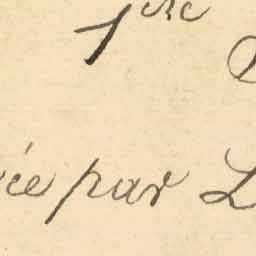 1ère
ée par L